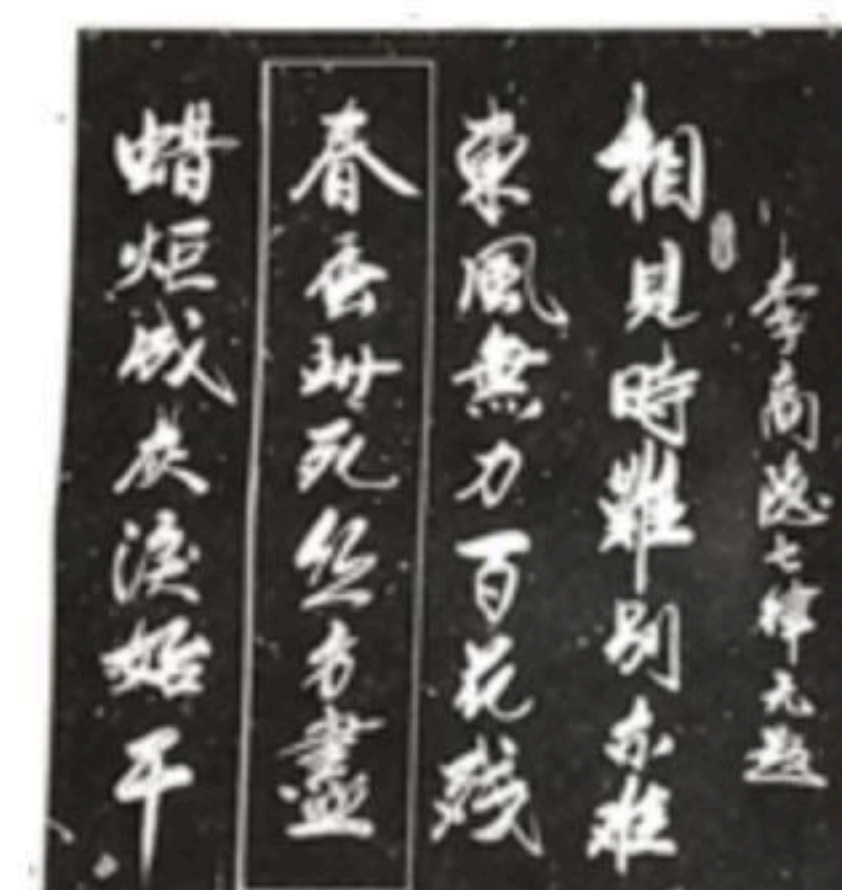 李商隐七律无题
相見時難别亦难
東風無力百花残
春蚕到死丝方盡
蜡炬成灰淚始干